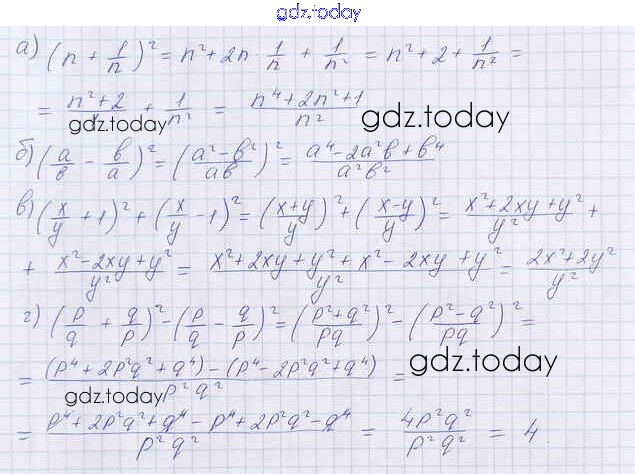 gdz.today
а) (n + 1/n)² = n² + 2n · 1/n + 1/n² = n² + 2 + 1/n² =
= (n² + 2)/ + 1/n² = (n⁴ + 2n² + 1)/n² gdz.today
gdz.today
б) (a/b − b/a)² = ((a² − b²)/ab)² = (a⁴ − 2a²b + b⁴)/a²b²
в) (x/y + 1)² + (x/y − 1)² = ((x+y)/y)² + ((x−y)/y)² = (x² + 2xy + y²)/y² +
+ (x² − 2xy + y²)/y² = (x² + 2xy + y² + x² − 2xy + y²)/y² = (2x² + 2y²)/y²
г) (p/q + q/p)² − (p/q − q/p)² = ((p² + q²)/pq)² − ((p² − q²)/pq)² =
= ((p⁴ + 2p²q² + q⁴) − (p⁴ − 2p²q² + q⁴))/p²q² = gdz.today
gdz.today
= (p⁴ + 2p²q² + q⁴ − p⁴ + 2p²q² − q⁴)/p²q² = 4p²q²/p²q² = 4